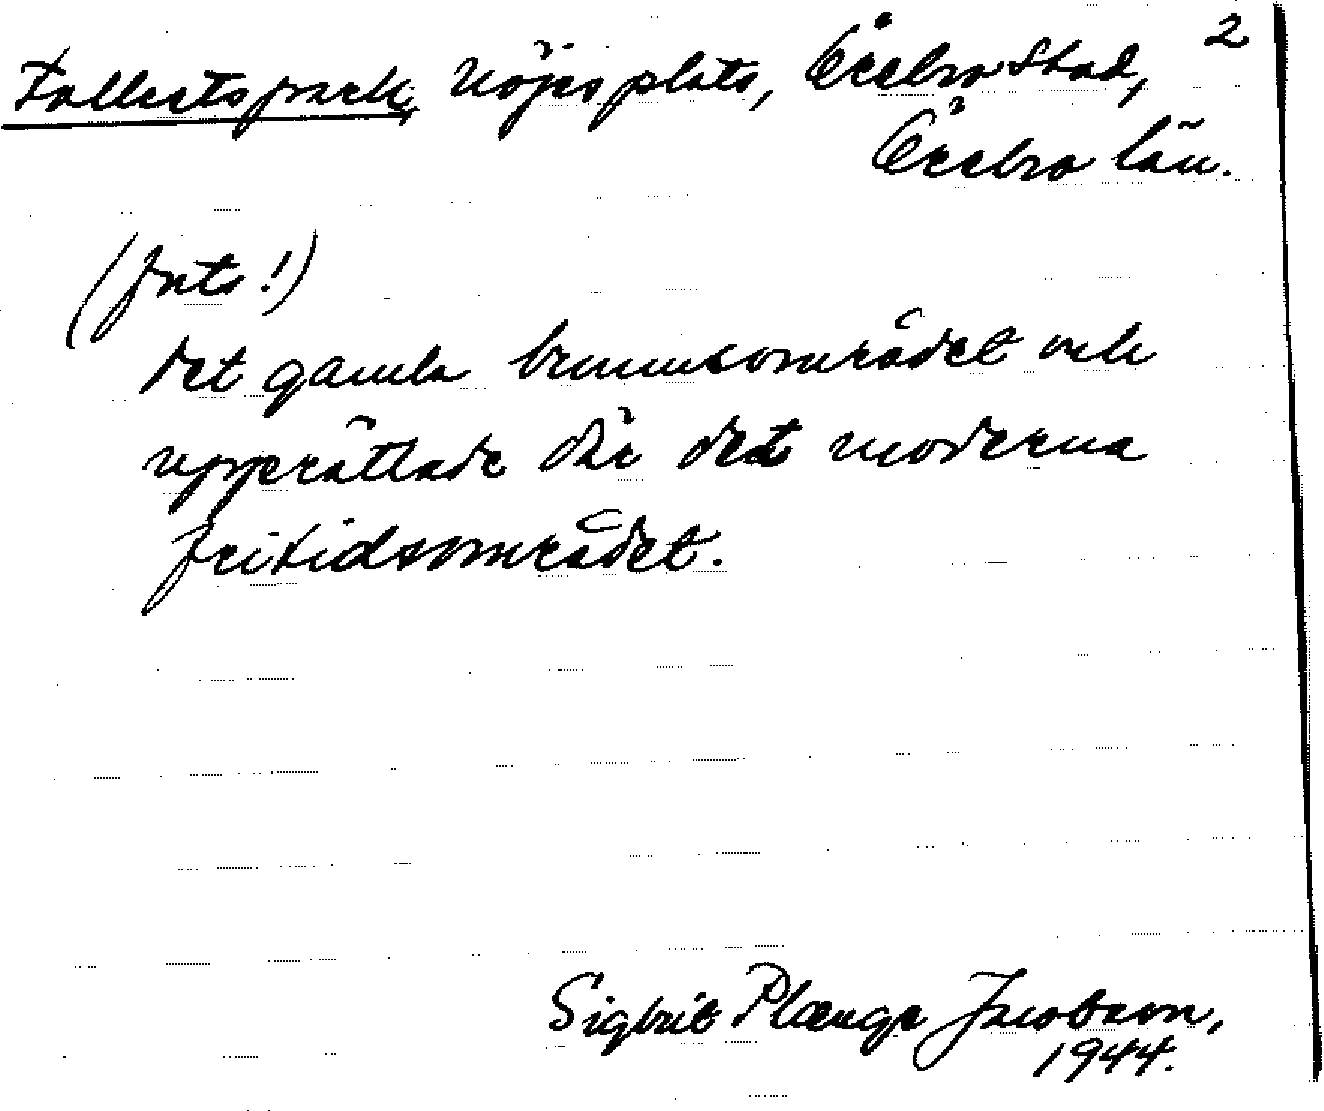 Folkets park, nöjesplats, Örebro Stad, 2
Örebro län.
(forts!)
det gamla brunnsområdet och
upprättade där det moderna
fritidsområdet.
Sigbrit Plænge Jacobson,
1944.